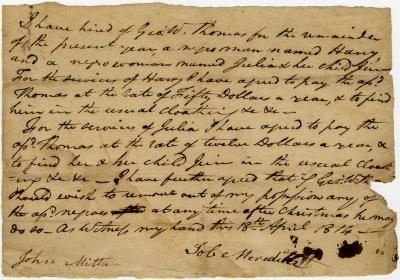 I have hired of Geo W. Thomas for the remainder
of the present year, a negro man named Harry
and a negro woman named Julia & her child Jim
For the services of Harry I have agreed to pay the sd.
Thomas at the rate of Fifty Dollars a year, & to find
him in the usual cloathing &c &c —
For the services of Julia I have agreed to pay the
sd. Thomas at the rate of twelve Dollars a year, &
to find her & her child Jim in the usual cloath-
ing &c &c — I have further agreed that if Geo W Th
should wish to remove out of my possession any of
the sd. negroes at any time after Christmas he may
do so — As witness my hand this 18th April 1814 —
Job Meredith
John Mitte